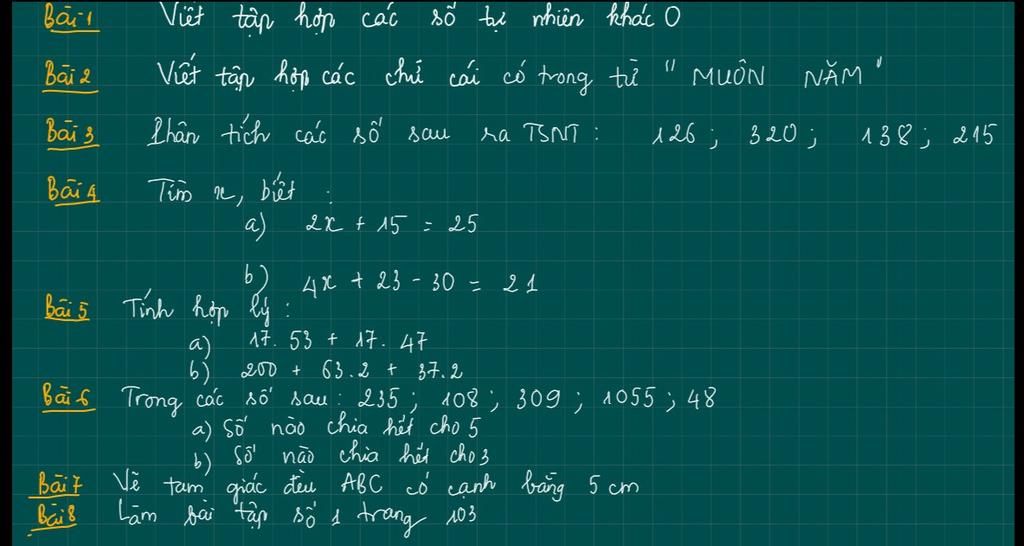 Bài 1 Viết tập hợp các số tự nhiên khác 0
Bài 2 Viết tập hợp các chữ cái có trong từ "MUÔN NĂM"
Bài 3 Phân tích các số sau ra TSNT : 126 ; 320 ; 138 ; 215
Bài 4 Tìm x, biết :
a) 2x + 15 = 25
b) 4x + 23 - 30 = 21
Bài 5 Tính hợp lý :
a) 17. 53 + 17. 47
b) 200 + 63.2 + 37.2
Bài 6 Trong các số sau : 235 ; 108 ; 309 ; 1055 ; 48
a) Số nào chia hết cho 5
b) Số nào chia hết cho 3
Bài 7 Vẽ tam giác đều ABC có cạnh bằng 5 cm
Bài 8 Làm bài tập số 1 trang 103